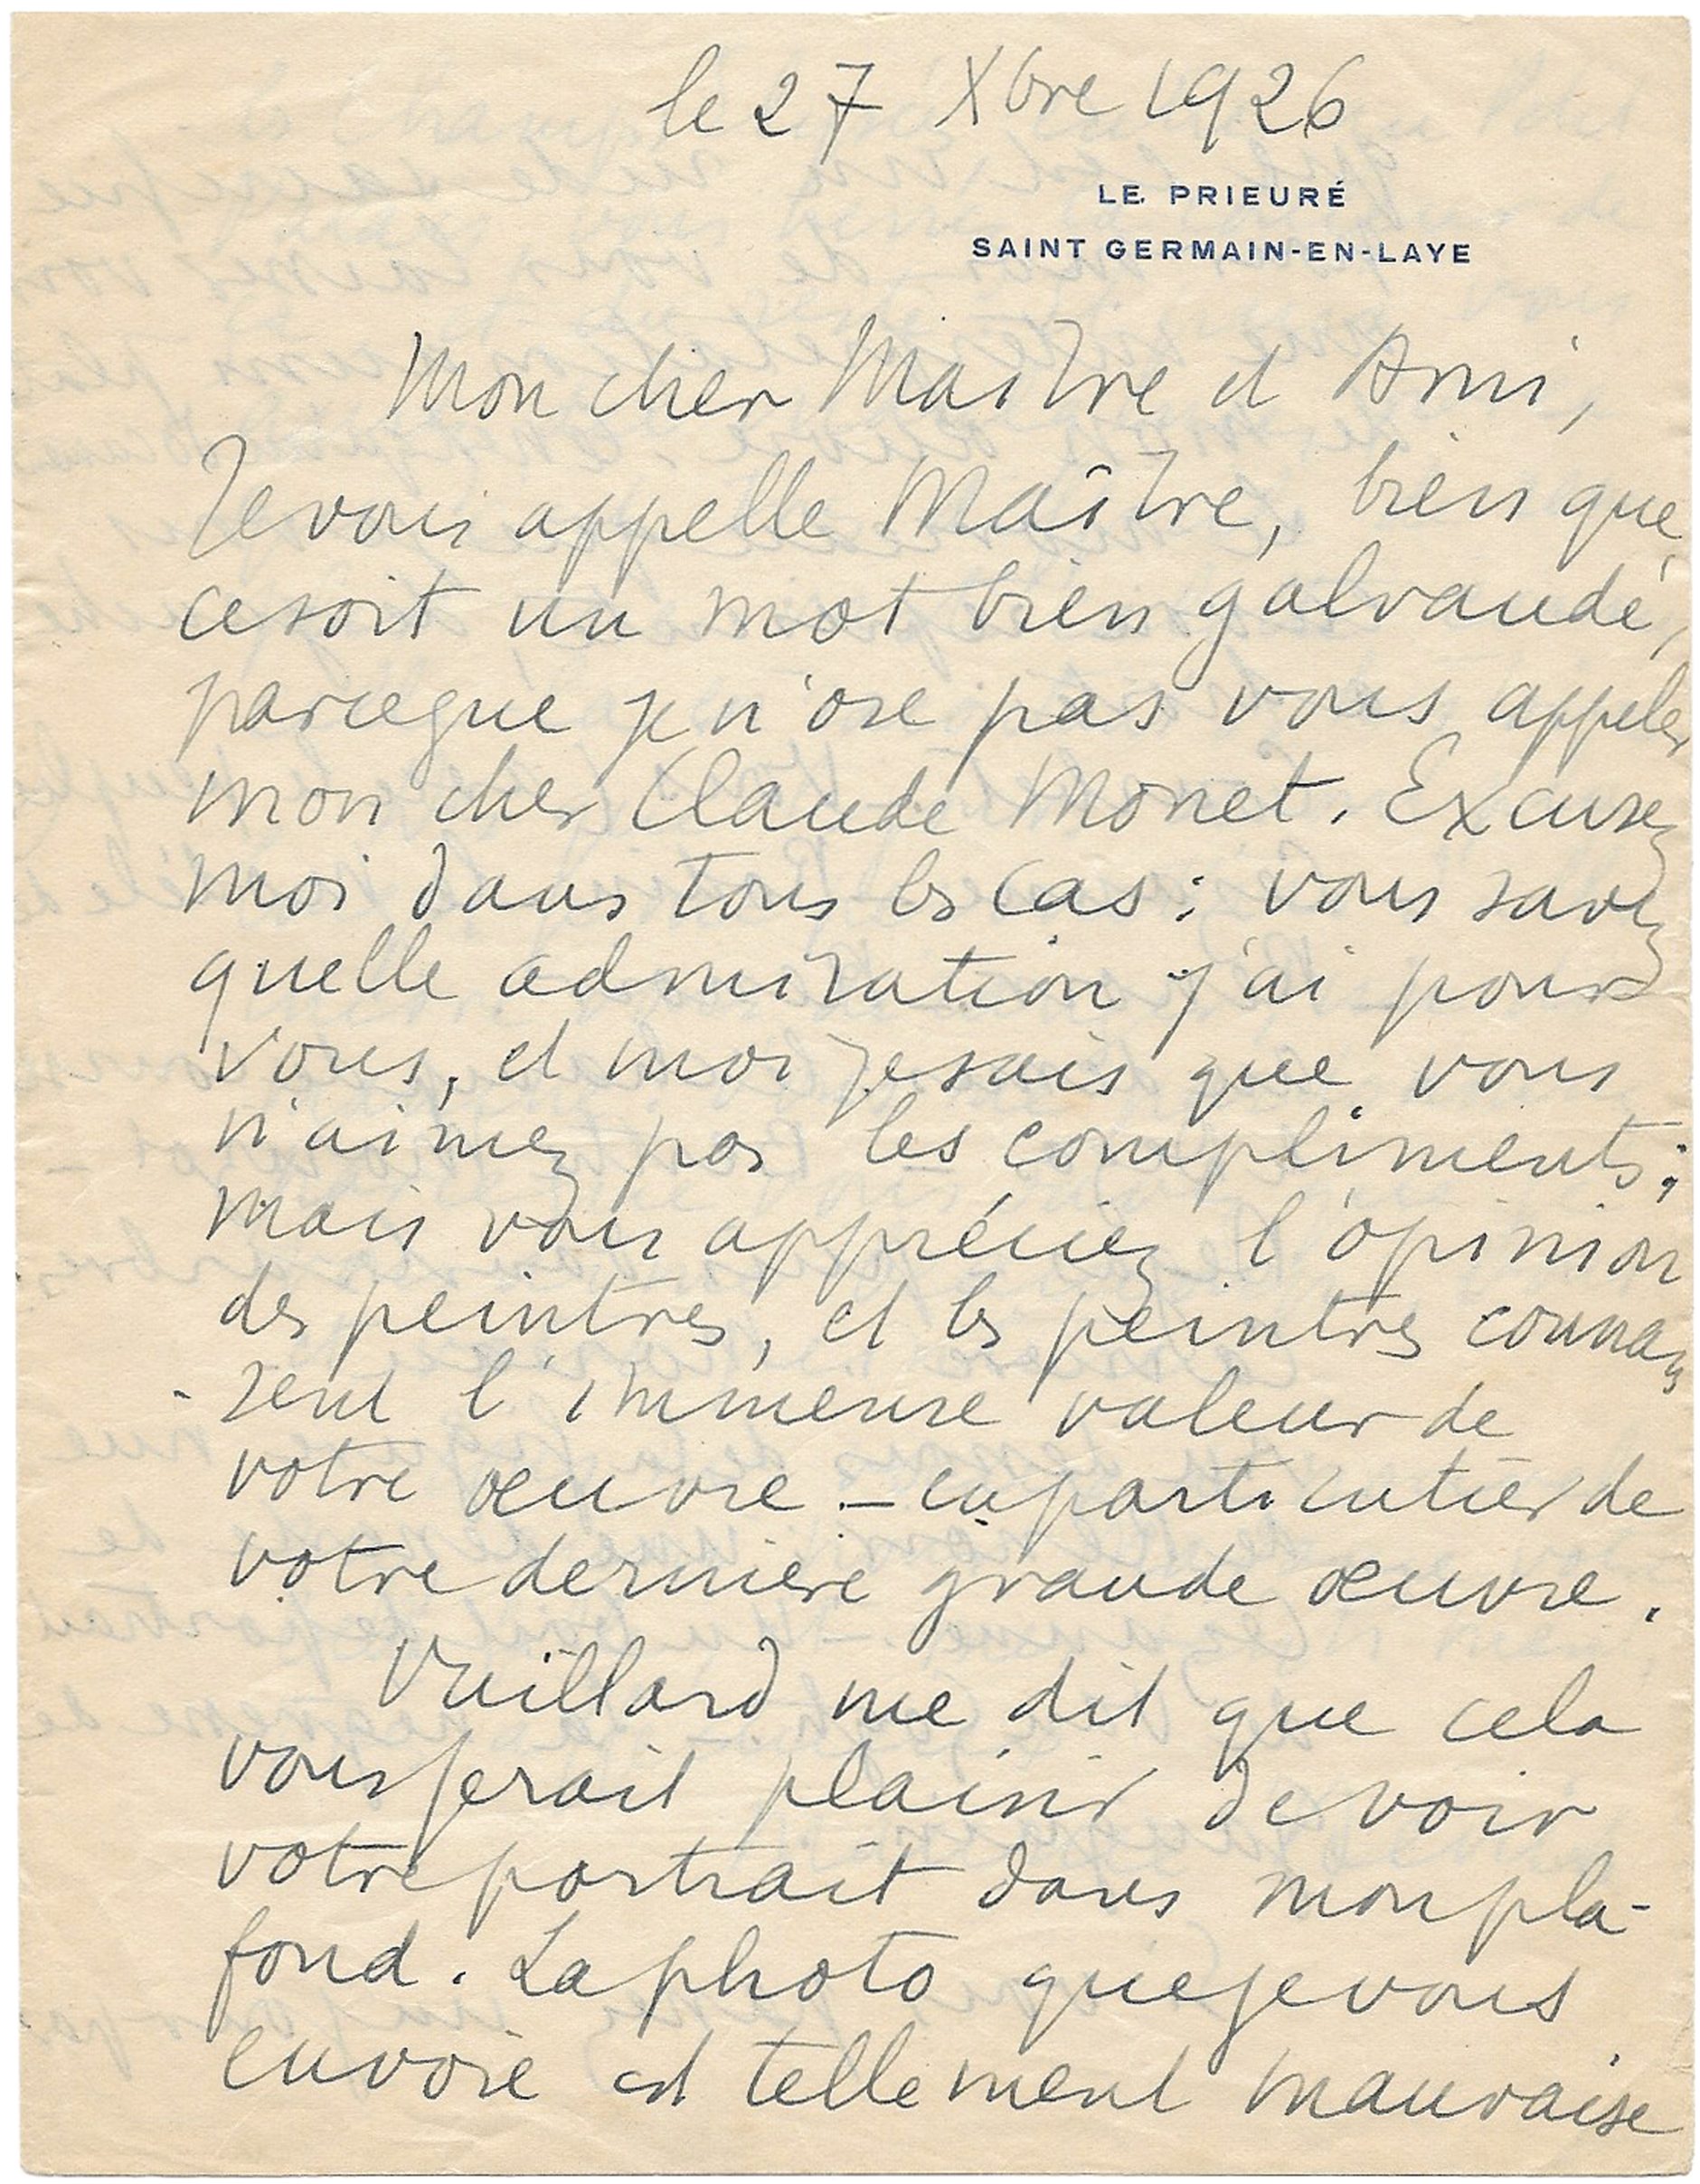 le 27 Xbre 1926
LE PRIEURÉ
SAINT GERMAIN-EN-LAYE
Mon cher Maître et Ami,
Je vous appelle Maître, bien que
ce soit un mot bien galvaudé,
parceque je n'ose pas vous appeler
mon cher Claude Monet. Excusez
moi dans tous les cas : vous savez
quelle admiration j'ai pour
vous, et moi je sais que vous
n'aimez pas les compliments ;
mais vous appréciez l'opinion
des peintres, et les peintres connais
- sent l'immense valeur de
votre œuvre - en particulier de
votre dernière grande œuvre.
Vuillard me dit que cela
vous ferait plaisir de voir
votre portrait dans mon pla-
fond. La photo que je vous
envoie est tellement mauvaise